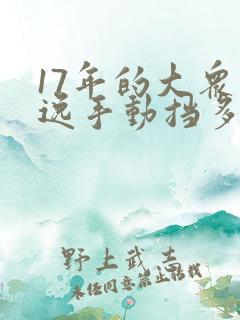 17年的大众
选手動挡多
野上武志
未经同意禁止转载